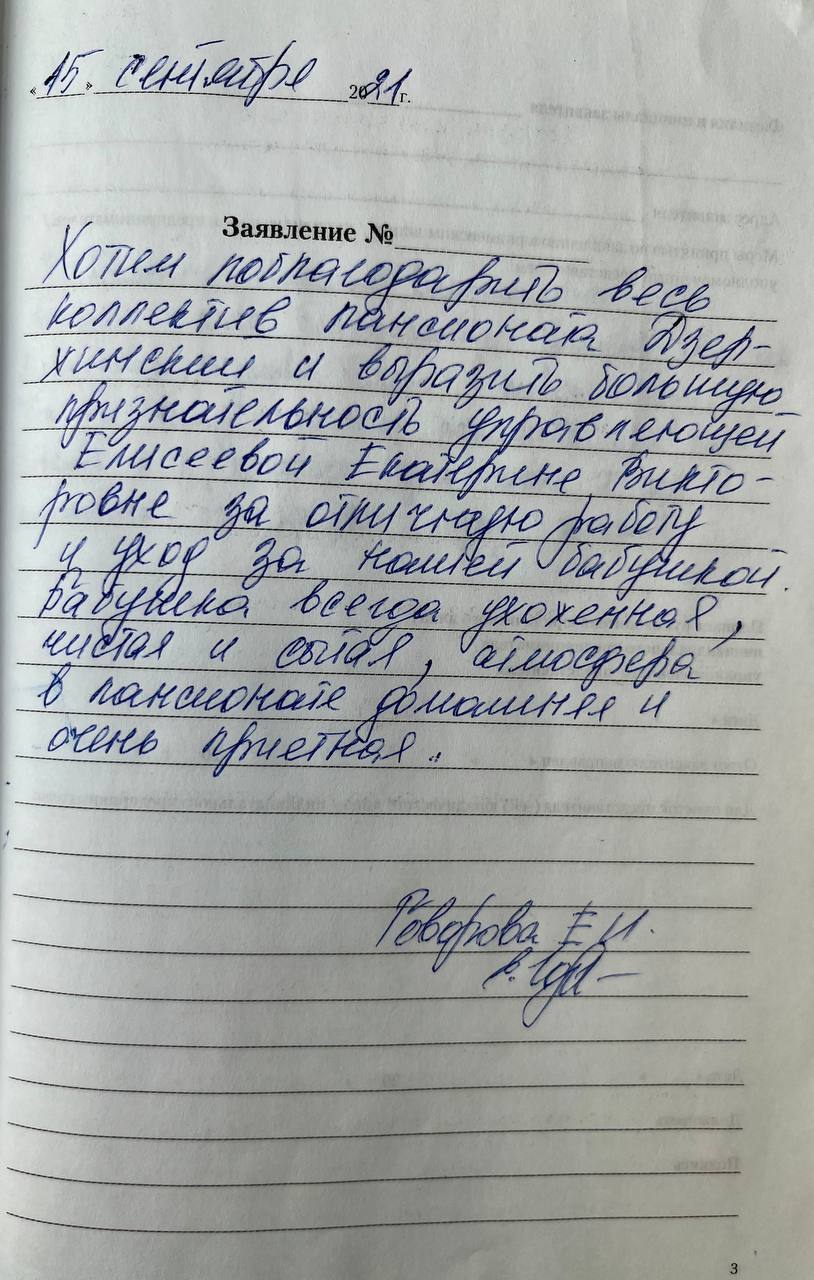 «15» сентября 2021 г.
Заявление №
Хотим поблагодарить весь
коллектив пансионата Дзер-
жинский и выразить большую
признательность управляющей
Елисеевой Екатерине Викто-
ровне за отличную работу
и уход за нашей бабушкой.
Бабушка всегда ухоженная,
чистая и сытая, атмосфера
в пансионате домашняя и
очень приятная.
Говорова Е И.
3